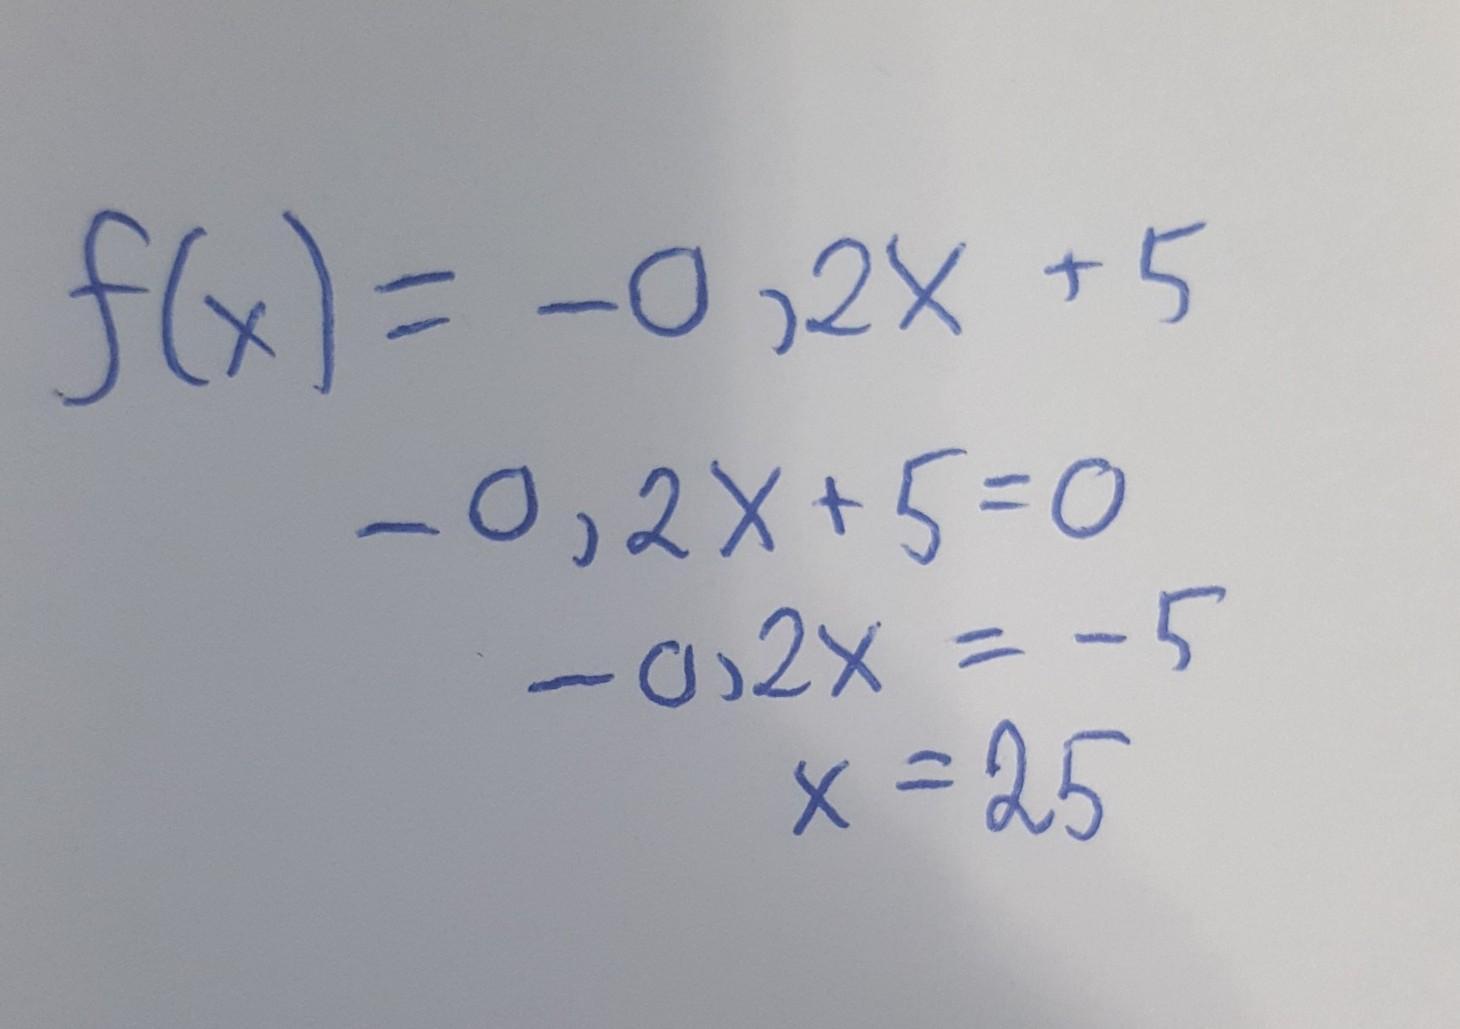 f(x) = -0,2x + 5
-0,2x + 5 = 0
-0,2x = -5
x = 25